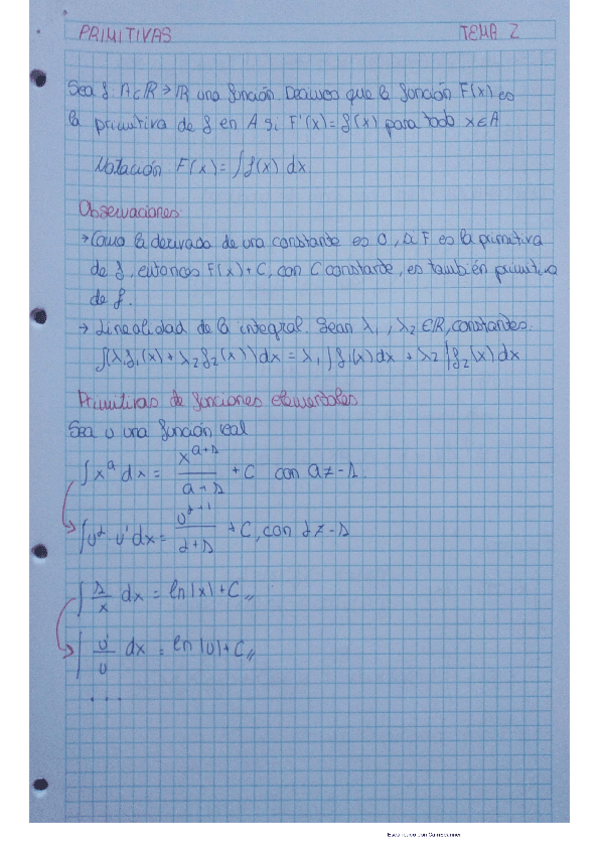 PRIMITIVAS TEMA 2
Sea f: A⊂ℝ→ℝ una función. Decimos que la función F(x) es
la primitiva de f en A si F'(x) = f(x) para todo x∈A
Notación F(x) = ∫f(x) dx.
Observaciones
→ Como la derivada de una constante es 0, si F es la primitiva
de f, entonces F(x)+C, con C constante, es también primitiva
de f.
→ Linealidad de la integral. Sean λ₁, λ₂ ∈ℝ, constantes.
∫(λ₁f₁(x) + λ₂f₂(x))dx = λ₁∫f₁(x)dx + λ₂∫f₂(x)dx
Primitivas de funciones elementales
Sea u una función real
∫x^a dx = x^(a+1)/(a+1) + C con a≠-1.
∫u^α u' dx = u^(α+1)/(α+1) + C, con α≠-1
∫1/x dx = ln|x| + C,,
∫u'/u dx = ln|u| + C,,
...
Escaneado con CamScanner